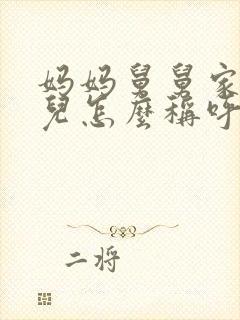 妈妈舅舅家
兒怎麼稱呼
二将